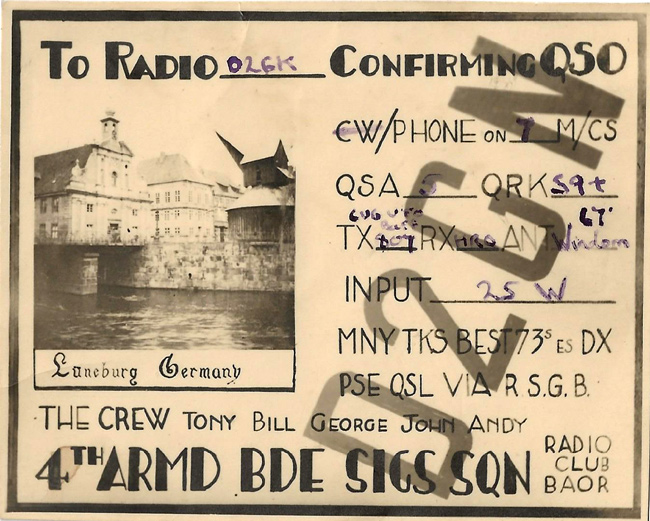 TO RADIO D2GK CONFIRMING QSO
CW/PHONE ON 7 M/CS
QSA 5 QRK S9+
TX 807 RX HRO ANT 67' Windom
INPUT 25 W
MNY TKS BEST 73s ES DX
PSE QSL VIA R.S.G.B.
Luneburg Germany
THE CREW TONY BILL GEORGE JOHN ANDY
4TH ARMD BDE SIGS SQN RADIO CLUB BAOR
D2GW